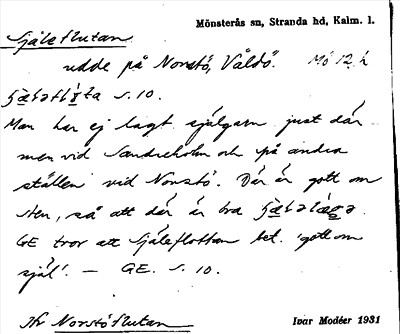 Mönsterås sn, Stranda hd, Kalm. l.
Själeflutan
udde på Norstö, Våldö. Mö 12 h
s. 10.
Man har ej lagt själgarn just där
men vid Sandreholm och på andra
ställen vid Norstö. Där är gott om
sten, så att där är bra
GE tror att Själeflottan bet. 'gott om
själ'. — GE. s. 10.
Jfr Norstöflutan
Ivar Modéer 1931